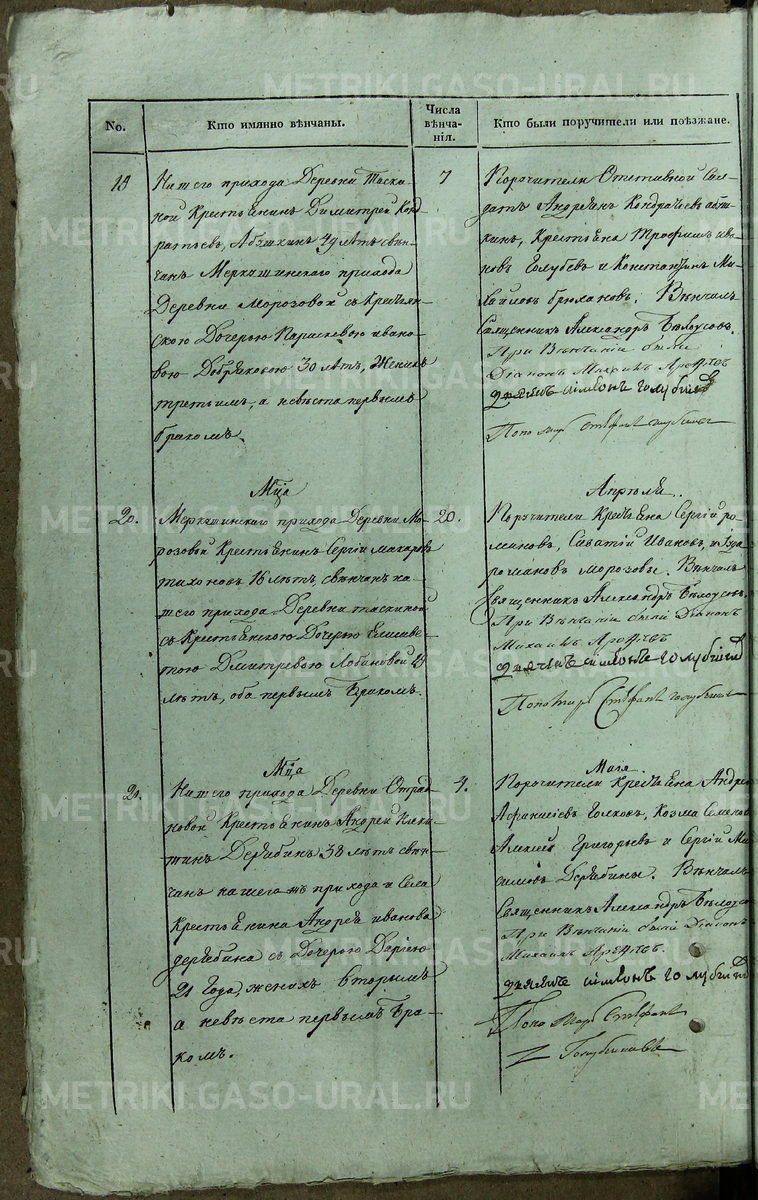 No.
Кто имянно вѣнчаны.
Числа
вѣнча-
нія.
Кто были поручители или поѣзжане.
19
Нашего прихода Деревни Таски-
ной Крестьянинъ Димитрей Конд-
ратьевъ, 49 лѣтъ свѣн-
чанъ Меркушинскаго прихода
Деревни Морозовой съ Крестьян-
скою Дочерью Параскевою ивано-
вою 30 лѣтъ, Женихъ
третьимъ, а невѣста первымъ
бракомъ.
7
Поручители Отставной Сол-
датъ Кондратьевъ
кинъ, Крестьяна Трофимъ ива-
новъ Голубевъ и Константинъ Ми-
хайловъ. Вѣнчалъ
Священникъ Александръ Бѣлоусовъ.
При Вѣнчаніи были
Діаконъ Михаилъ Арефьевъ
дьячекъ симеонъ голубцов
Пономарь Стефанъ
Мца
Апрѣля.
20.
Меркушинскаго прихода Деревни Мо-
розовой Крестьянинъ Сергій Макаровъ
тихоновъ 16 лѣтъ, свѣнчанъ на-
шего прихода Деревни таскиной
съ Крестьянскою Дочерью Елисаве-
тою Дмитревою Лобановой 21
лѣтъ, оба первымъ Бракомъ.
20.
Поручители Сергій ро-
мановъ, Саватій Ивановъ, и
романовъ Морозовы. Вѣнчалъ
Священникъ Александръ Бѣлоусовъ
При Вѣнчаніи были Діаконъ
Михаилъ Арефьевъ
дьячекъ симеонъ голубцов
Пономарь Стефанъ
Мца
Маія
21
Нашего прихода Деревни Отрад-
новой Крестьянинъ Андрей Ники-
тинъ Дерябинъ 38 лѣтъ свѣн-
чанъ нашегажъ прихода и Села
Крестьянина Андрея иванова
дерябина съ Дочерью Даріею
21 Года, женихъ вторымъ
а невѣста первымъ Бра-
комъ.
4.
Поручители Андрей
Афанасіевъ, Козма Семенов
Алексей Григорьевъ и Сергій Ма-
симовъ Дерябины. Вѣнчалъ
Священникъ Александръ Бѣлоусов
При Вѣнчаніи были Діаконъ
Михаилъ Арефьевъ.
дьячекъ симеонъ голубцов
Пономарь Стефанъ
METRIKI.GASO-URAL.RU